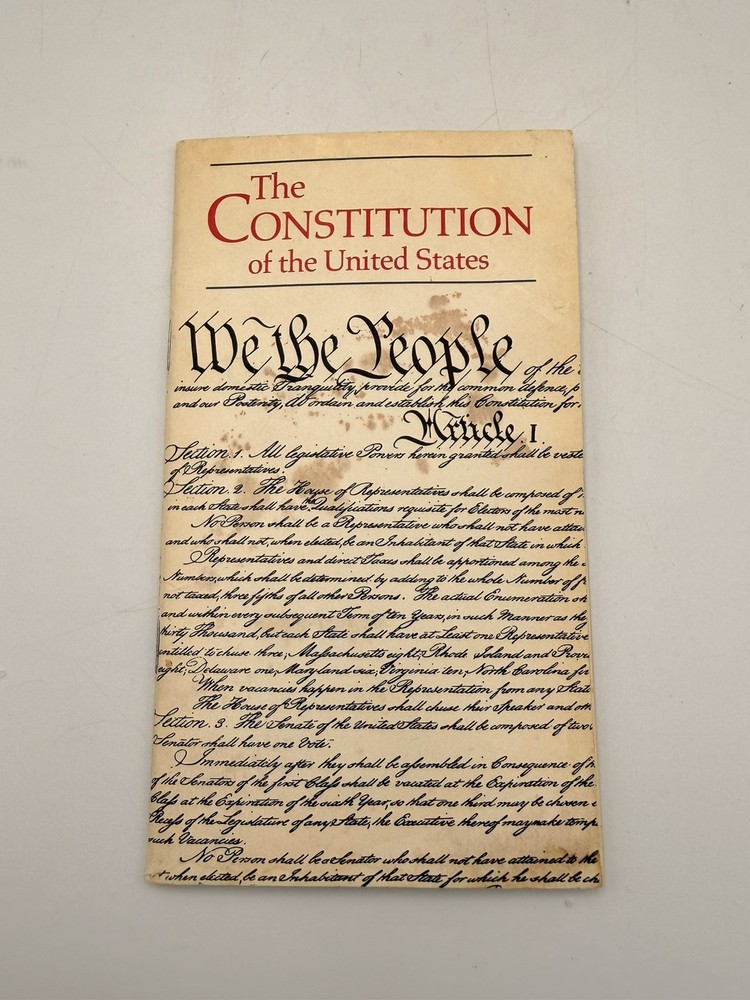 The
CONSTITUTION
of the United States
We the People of the
insure domestic Tranquility, provide for the common defence, p
and our Posterity, do ordain and establish this Constitution for
Article I.
Section. 1. All legislative Powers herein granted shall be veste
of Representatives.
Section. 2. The House of Representatives shall be composed of
in each State shall have the Qualifications requisite for Electors of the most n
No Person shall be a Representative who shall not have attai
and who shall not, when elected, be an Inhabitant of that State in which
Representatives and direct Taxes shall be apportioned among the
Numbers, which shall be determined by adding to the whole Number of f
not taxed, three fifths of all other Persons. The actual Enumeration sh
and within every subsequent Term of ten Years, in such Manner as they
thirty Thousand, but each State shall have at Least one Representative
entitled to chuse three, Massachusetts eight, Rhode Island and Prov
eight, Delaware one, Maryland six, Virginia ten, North Carolina fiv
When vacancies happen in the Representation from any State
The House of Representatives shall chuse their Speaker and oth
Section. 3. The Senate of the United States shall be composed of two
Senator shall have one Vote.
Immediately after they shall be assembled in Consequence of th
of the Senators of the first Class shall be vacated at the Expiration of the
Class at the Expiration of the sixth Year, so that one third may be chosen e
Recess of the Legislature of any State, the Executive thereof may make temp
such Vacancies.
No Person shall be a Senator who shall not have attained to the
when elected, be an Inhabitant of that State for which he shall be ch